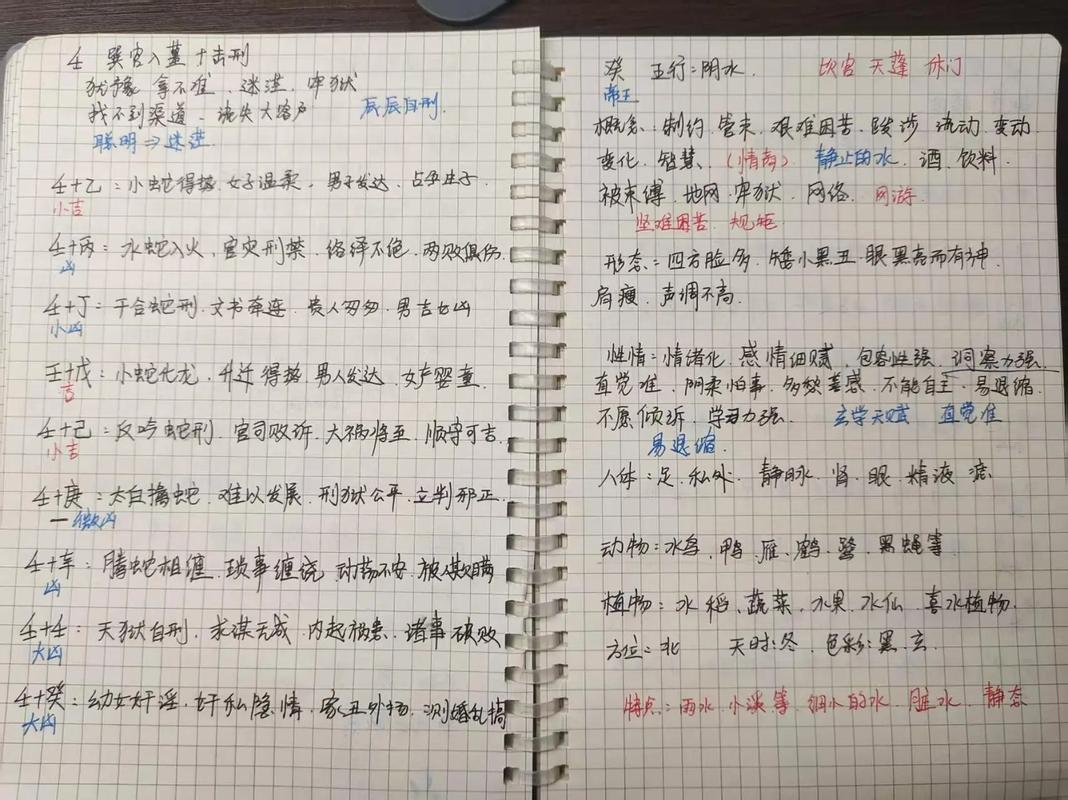 壬 巽宫入墓+击刑
犹豫 拿不准 迷茫 牢狱
找不到渠道、流失大客户 辰辰自刑.
聪明⇒迷茫
壬+乙：小蛇得势.女子温柔，男子发达，占孕生子.
小吉
壬+丙：水蛇入火，官灾刑禁、络绎不绝，两败俱伤.
凶
壬+丁：干合蛇刑.文书牵连.贵人匆匆，男吉女凶
小凶
壬+戊：小蛇化龙，升迁得势 男人发达，女产婴童.
吉
壬+己：反吟蛇刑，官司败诉，大祸将至，顺守可吉.
小吉
壬+庚：太白擒蛇，难以发展，刑狱公平.立判邪正.
微凶
壬+辛：腾蛇相缠，琐事缠绕 动荡不安.被人欺瞒
凶
壬+壬：天狱自刑，求谋无成，内起祸患、诸事破败
大凶
壬+癸：幼女奸淫，奸私隐情，家丑外扬，测婚乱搞
大凶
癸 五行：阴水. 坎宫 天蓬 休门
帝王
概念：制约.管束.艰难困苦.跋涉 流动.变动
变化.智慧、(情商) 静止的水.酒.饮料.
被束缚.地网.牢狱.网络.网游.
坚难困苦 规矩
形态：四方脸多.矮小黑丑.眼黑亮而有神.
肩瘦.声调不高.
性情：情绪化.感情细腻.包容性强.洞察力强.
直觉准.阴柔怕事.多愁善感.不能自主.易退缩.
不愿倾诉.学习力强. 玄学天赋 直觉准
易退缩.
人体：足.私处.静脉.肾.眼.精液.
动物：水鸟.鸭.雁.鹤.鹭.黑蝇等
植物：水稻、蔬菜、水果.水仙.喜水植物.
方位：北 天时：冬. 色彩：黑.玄.
特点：雨水.小溪等.细小的水.脏水.静态